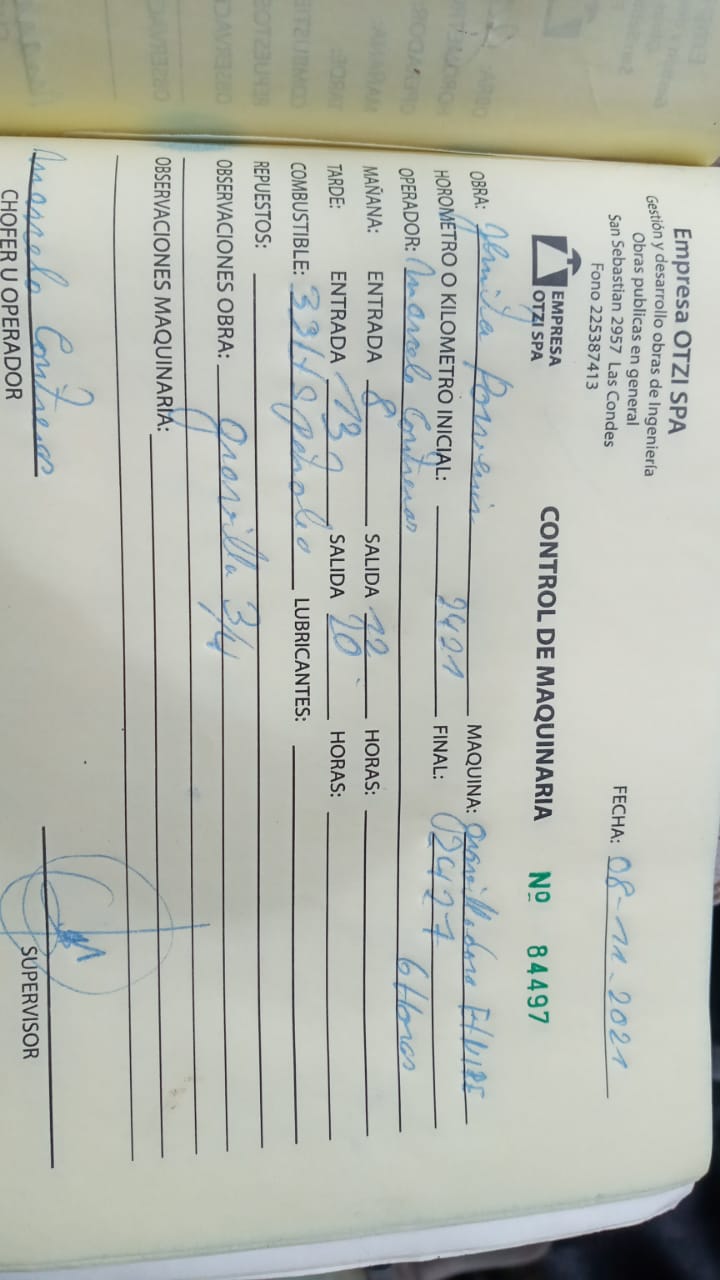 Empresa OTZI SPA
Gestión y desarrollo obras de Ingeniería
Obras publicas en general
San Sebastian 2957 Las Condes
Fono 225387413
FECHA: 08-11-2021
EMPRESA
OTZI SPA
CONTROL DE MAQUINARIA Nº 84497
OBRA: Porvenir MAQUINA: gravilladora
HOROMETRO O KILOMETRO INICIAL: 2421 FINAL: 02427
OPERADOR: Marcelo Contreras 6 Horas
MAÑANA: ENTRADA 8 SALIDA 12 HORAS:
TARDE: ENTRADA 13 SALIDA 20 HORAS:
COMBUSTIBLE: petroleo LUBRICANTES:
REPUESTOS:
OBSERVACIONES OBRA: gravilla 3/4
OBSERVACIONES MAQUINARIA:
Marcelo Contreras
CHOFER U OPERADOR
SUPERVISOR